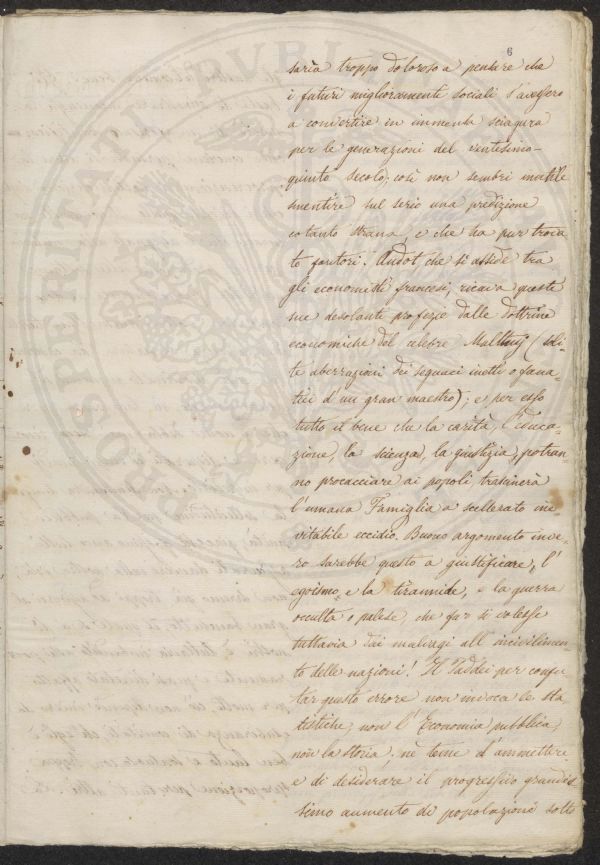 6
saria troppo doloroso a pensare che
i futuri miglioramenti sociali s'avessero
a convertire in immensa sciagura
per le generazioni del ventesimo-
quinto secolo; così non sembri inutile
smentire sul serio una predizione
cotanto strana, e che ha pur trova
to fautori. Audot, che si asside tra
gli economisti francesi, ricava queste
sue desolanti profezie dalle dottrine
economiche del celebre Malthus (soli-
te aberrazioni dei seguaci inetti o fana-
tici d'un gran maestro); e per esso
tutto il bene che la carità, l'Educa-
zione, la scienza, la giustizia, potran-
no procacciare ai popoli trascinerà
l'umana Famiglia a scellerato ine-
vitabile eccidio. Buono argomento inve-
ro sarebbe questo a giustificare, l'
egoismo, e la tirannide, e la guerra
occulta o palese, che far si volesse
tuttavia dai malvagi all'incivilimen-
to delle nazioni! Il Taddei per confu-
tar questo errore non invoca le sta
tistiche, non l'Economia pubblica,
non la storia; ne teme d'ammettere
e di desiderare il progressivo grandis
simo aumento di popolazione sotto